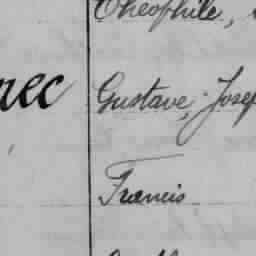 Théophile,
nec Gustave, Josep
Francis